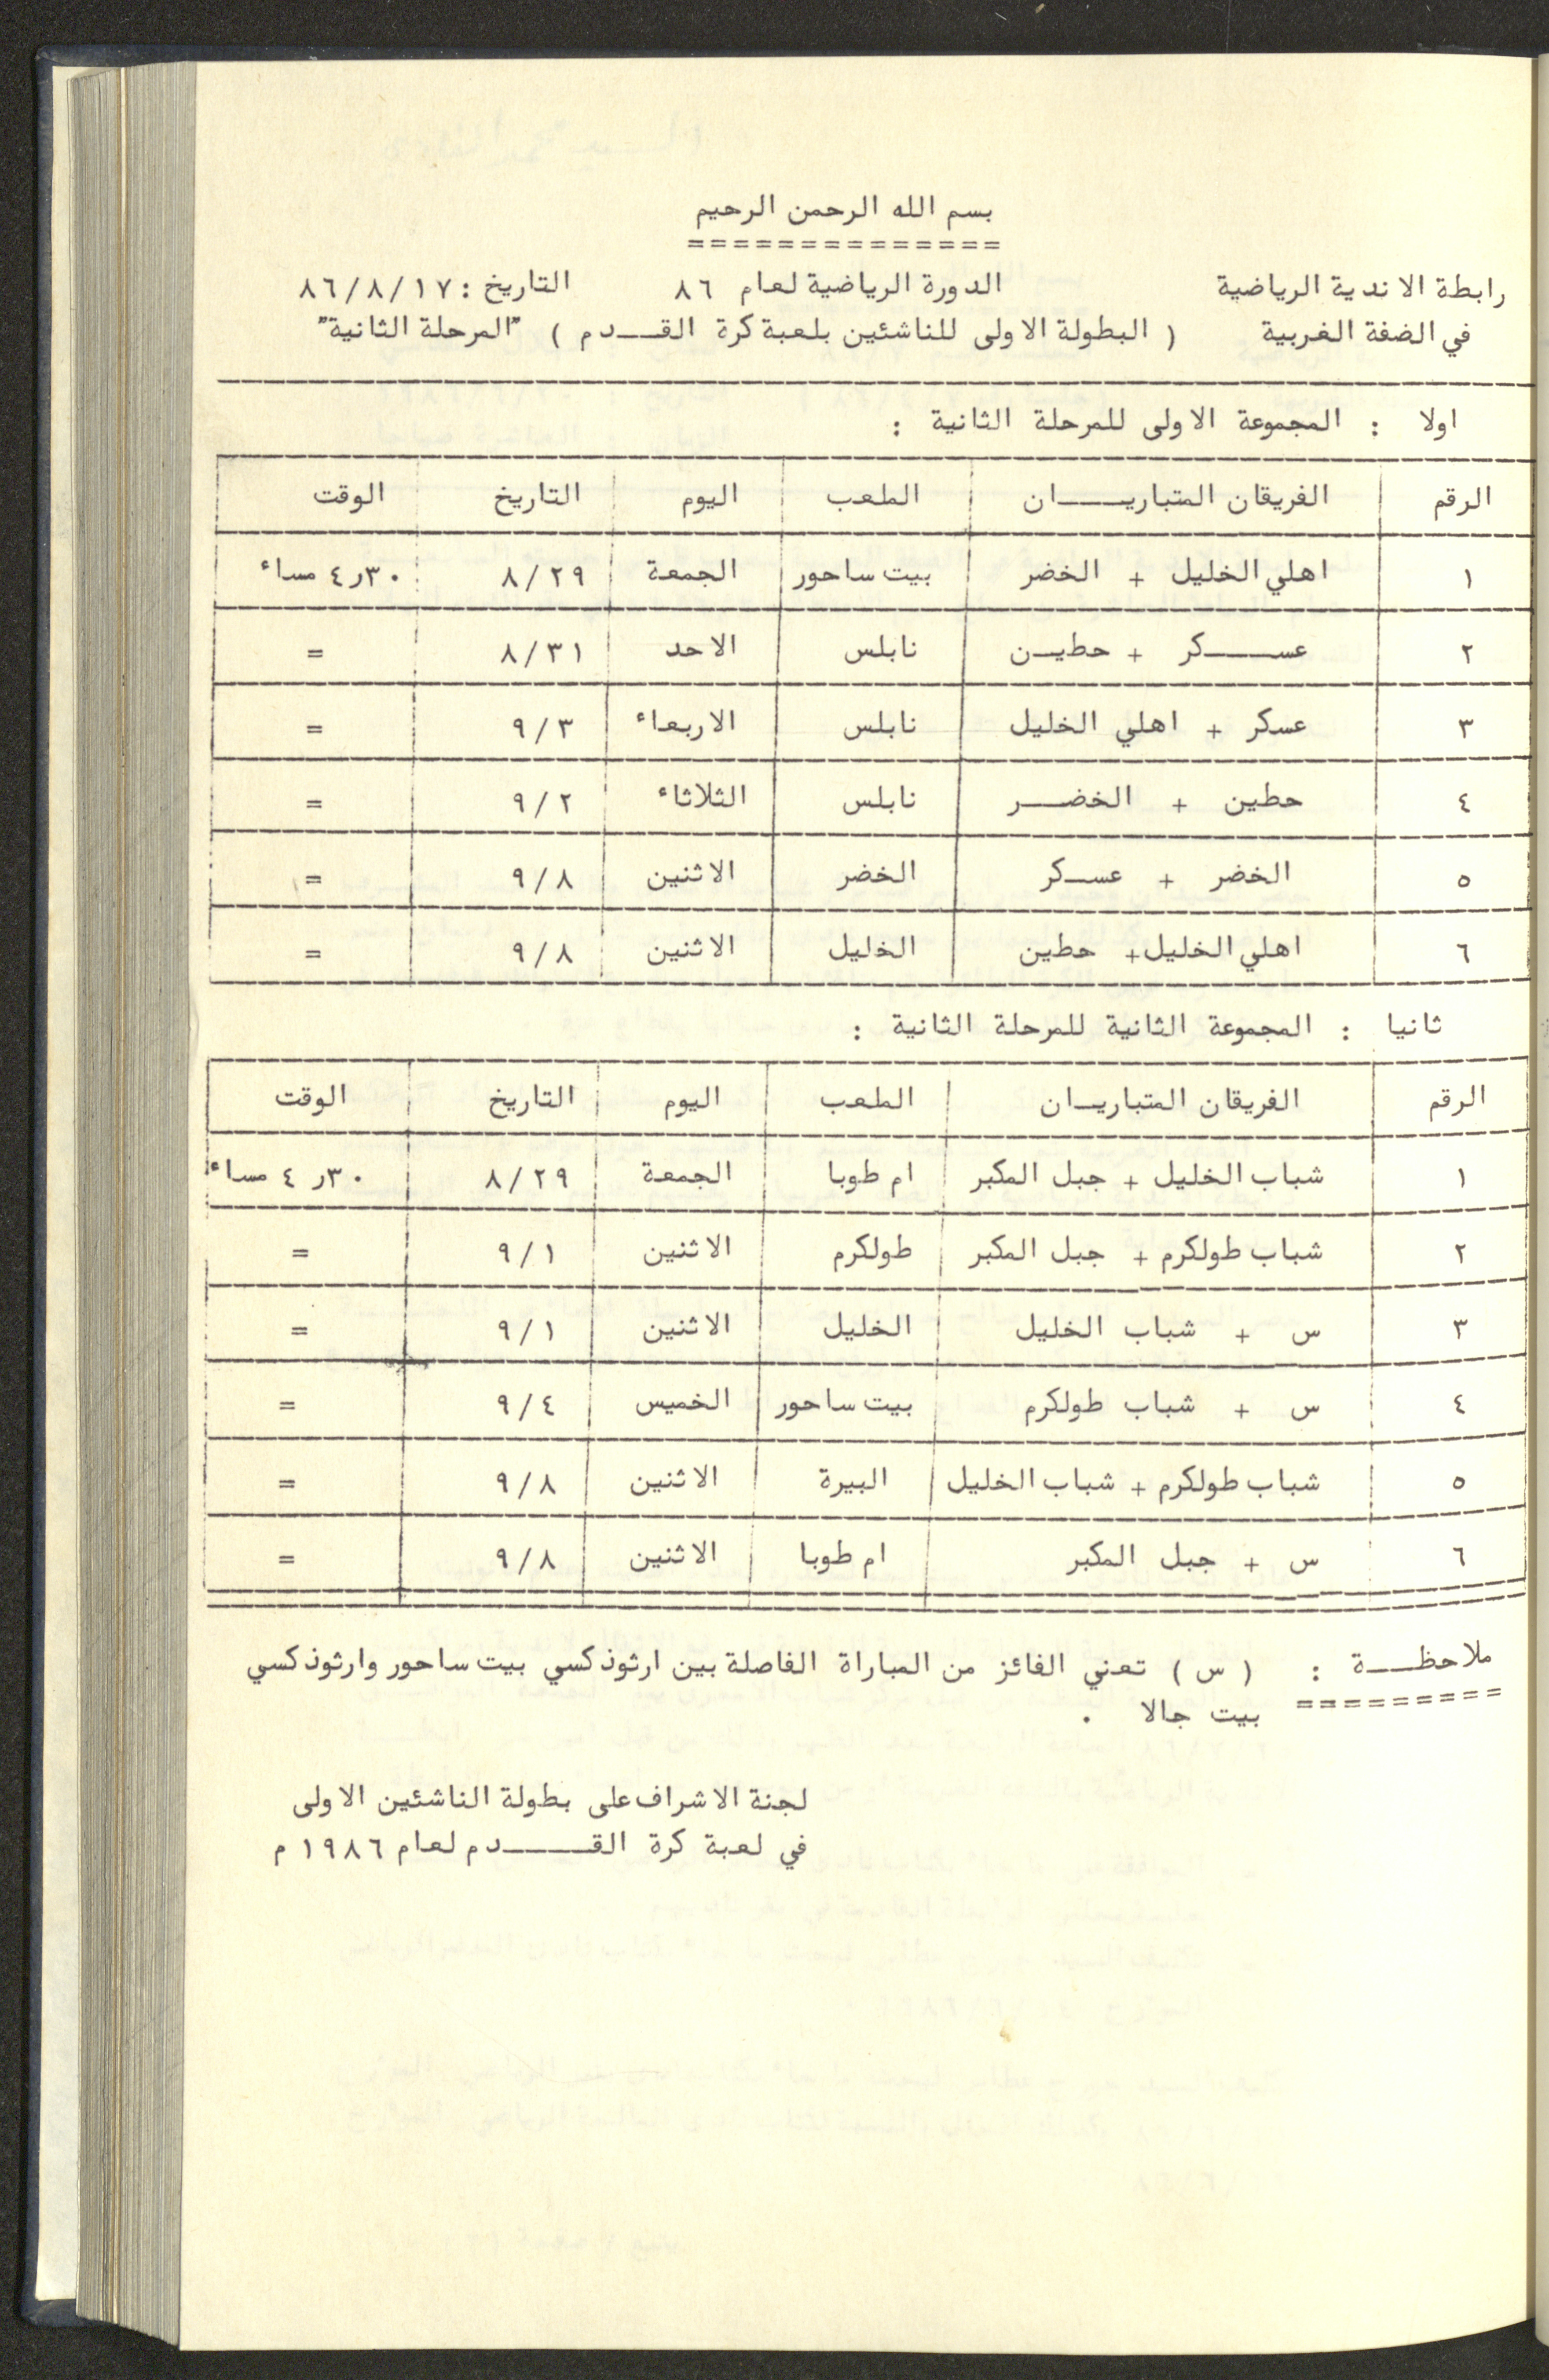 بسم الله الرحمن الرحيم
==============
رابطة الاندية الرياضية الدورة الرياضية لعام ٨٦ التاريخ : ٨٦/٨/١٧
في الضفة الغربية ( البطولة الاولى للناشئين بلعبة كرة القــدم ) "المرحلة الثانية"
اولا : المجموعة الاولى للمرحلة الثانية :
الرقم الفريقان المتباريــان الملعب اليوم التاريخ الوقت
١ اهلي الخليل + الخضر بيت ساحور الجمعة ٨/٢٩ ٤ر٣٠ مساء
٢ عســكر + حطيـن نابلس الاحد ٨/٣١ =
٣ عسكر + اهلي الخليل نابلس الاربعاء ٩/٣ =
٤ حطين + الخضــر نابلس الثلاثاء ٩/٢ =
٥ الخضر + عسـكر الخضر الاثنين ٩/٨ =
٦ اهلي الخليل+ حطين الخليل الاثنين ٩/٨ =
ثانيا : المجموعة الثانية للمرحلة الثانية :
الرقم الفريقان المتباريـان الملعب اليوم التاريخ الوقت
١ شباب الخليل + جبل المكبر ام طوبا الجمعة ٨/٢٩ ٤ ر٣٠ مساء
٢ شباب طولكرم + جبل المكبر طولكرم الاثنين ٩/١ =
٣ س + شباب الخليل الخليل الاثنين ٩/١ =
٤ س + شباب طولكرم بيت ساحور الخميس ٩/٤ =
٥ شباب طولكرم + شباب الخليل البيرة الاثنين ٩/٨ =
٦ س + جبل المكبر ام طوبا الاثنين ٩/٨ =
ملاحظــة : ( س ) تعني الفائز من المباراة الفاصلة بين ارثوذكسي بيت ساحور وارثوذكسي
========= بيت جالا .
لجنة الاشراف على بطولة الناشئين الاولى
في لعبة كرة القـــدم لعام ١٩٨٦ م